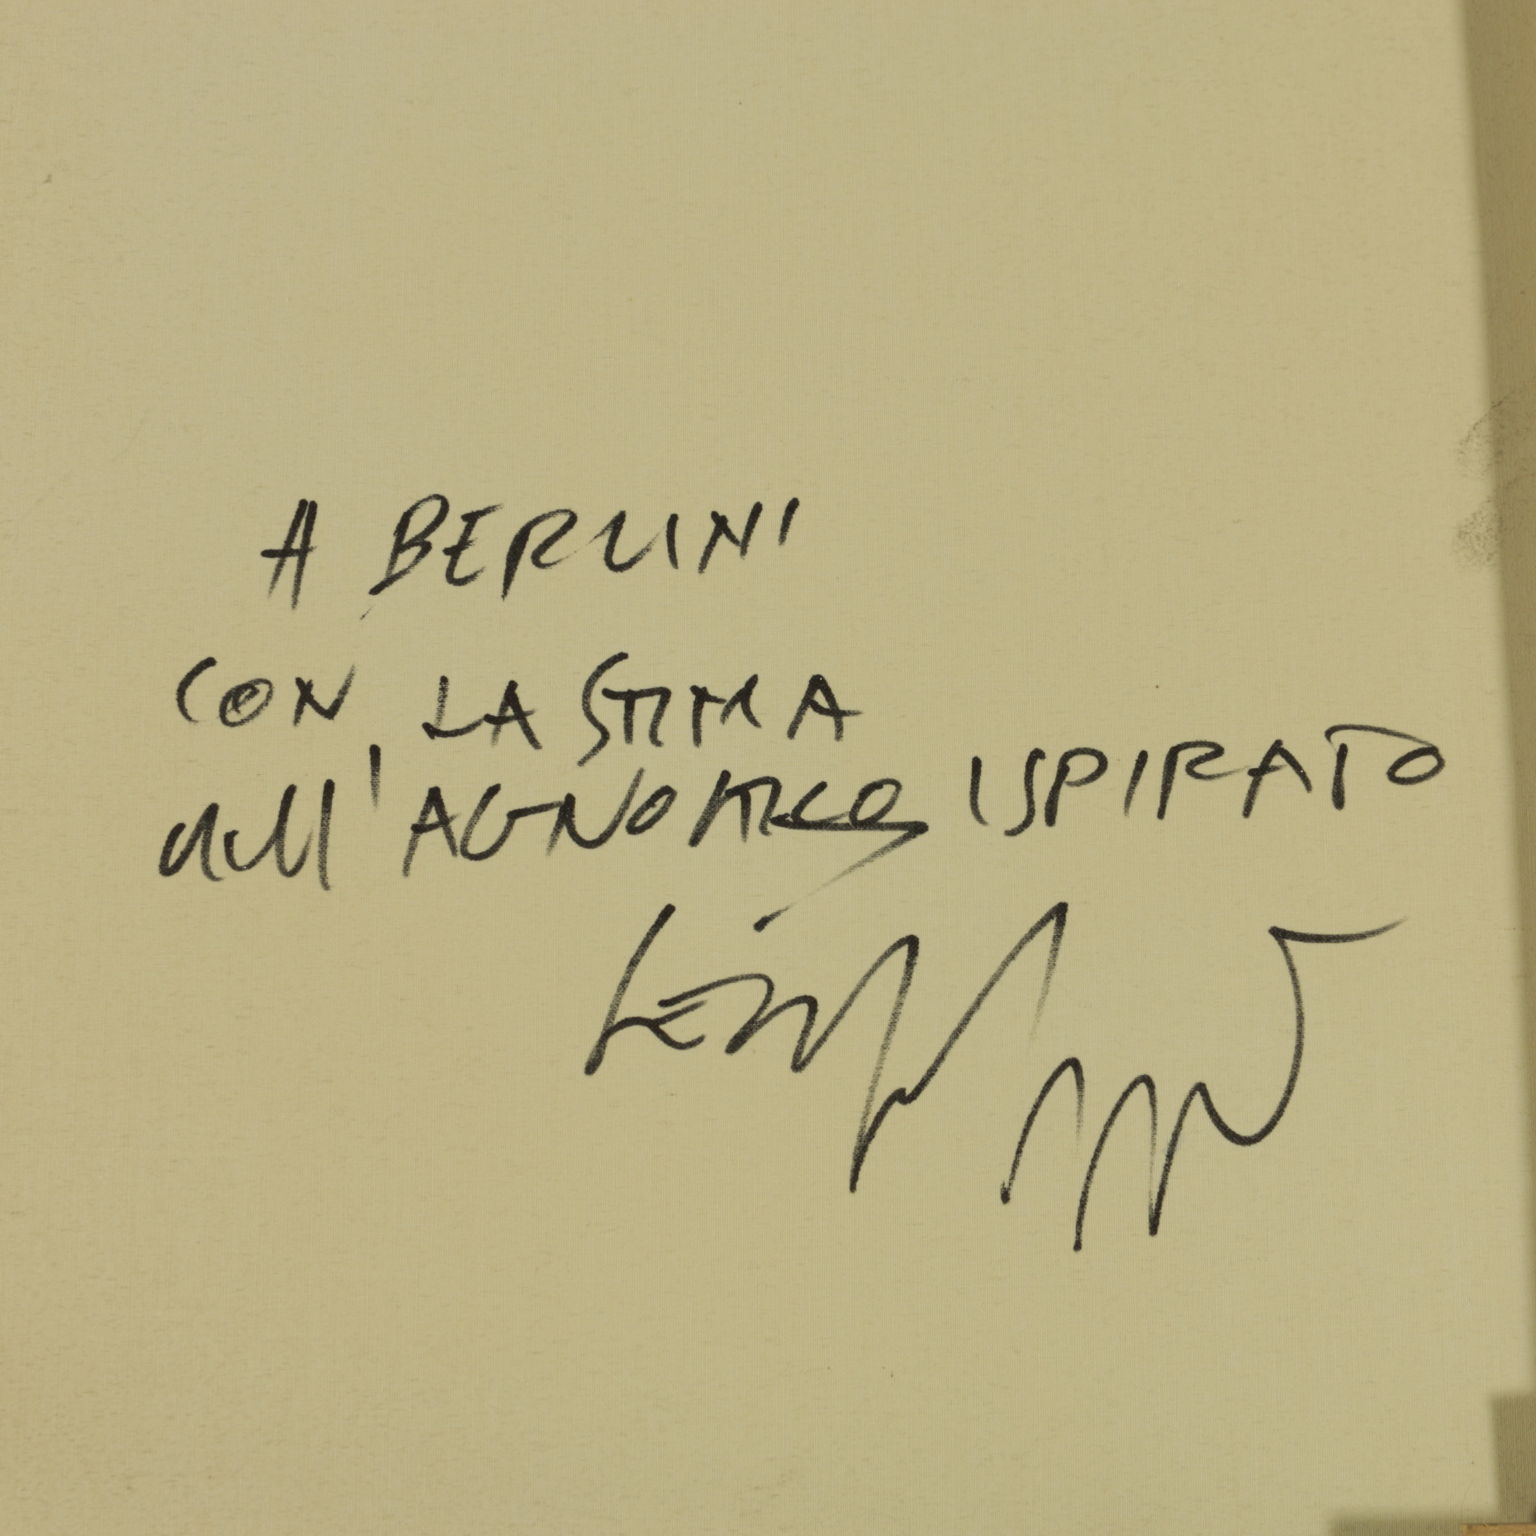 A BERLINI
CON LA STIMA
dell'AGNOSTICO ISPIRATO